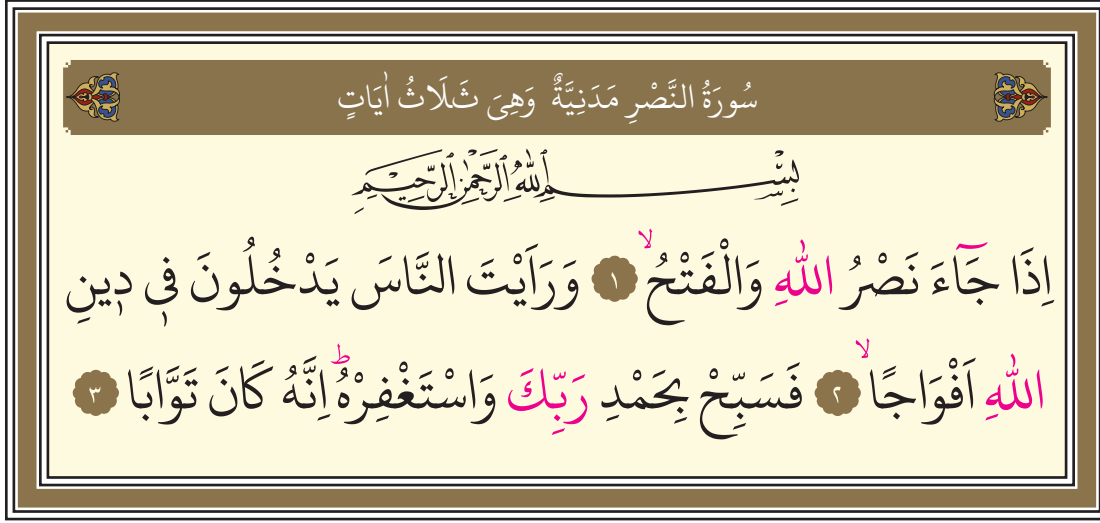 سُورَةُ النَّصْرِ مَدَنِيَّةٌ وَهِيَ ثَلَاثُ اٰيَاتٍ
بِسْمِ اللّٰهِ الرَّحْمٰنِ الرَّحِيمِ
اِذَا جَٓاءَ نَصْرُ اللّٰهِ وَالْفَتْحُۙ ﴿١﴾ وَرَاَيْتَ النَّاسَ يَدْخُلُونَ ف۪ي د۪ينِ
اللّٰهِ اَفْوَاجًاۙ ﴿٢﴾ فَسَبِّحْ بِحَمْدِ رَبِّكَ وَاسْتَغْفِرْهُۜ اِنَّهُ كَانَ تَوَّابًا ﴿٣﴾